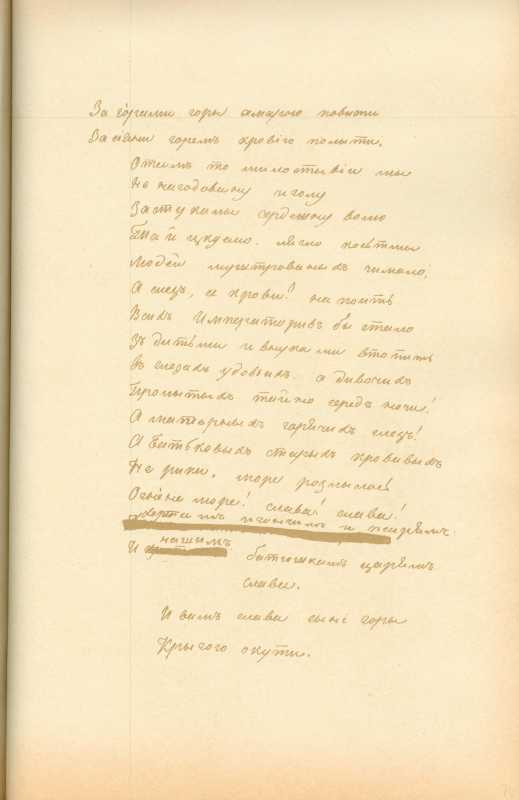 За горами горы хмарою повыти
Засіяни горемъ кровію полыти.
Отамъ то милостывіи мы
Не нагодовану и голу
Застукалы сердешну волю
Та й цкуемо. лягло костьмы
Людей муштрованыхъ чимало.
А слезъ, а крови! напоить
Всихъ Императоривъ бы стало
Зъ дитьми и внуками втопить
Въ слезахъ удовьихъ. а дивочихъ
Пролытыхъ тайно середъ ночи!
А матернихъ гарячихъ слезъ!
А батьковыхъ старыхъ кровавыхъ
Не рики, море розлылось
Огненне море! слава! слава!
хортамъ и гончимъ и псарямъ.
И нашимъ батюшкамъ царямъ
слава.
И вамъ слава сыни горы
Крыгого окути.